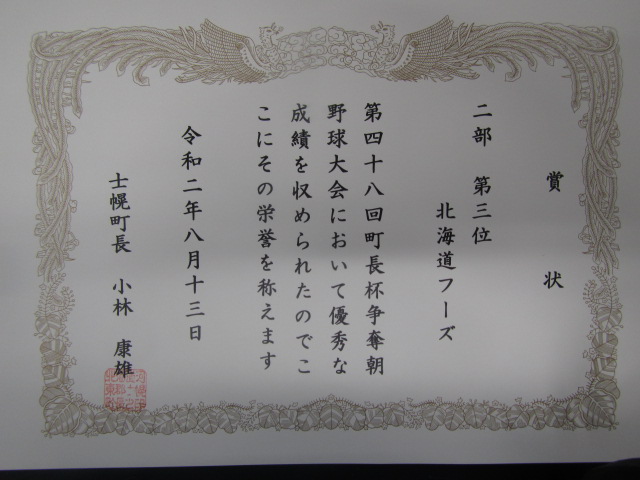 賞状
二部 第三位
北海道フーズ
第四十八回町長杯争奪朝
野球大会において優秀な
成績を収められたのでこ
こにその栄誉を称えます
令和二年八月十三日
士幌町長 小林 康雄